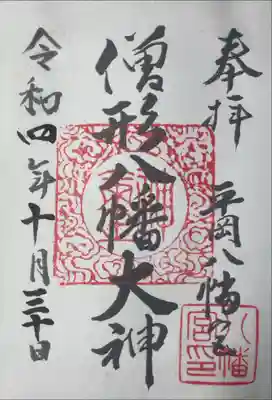 奉拝
平岡八幡宮
僧形八幡大神
令和四年十月三十日